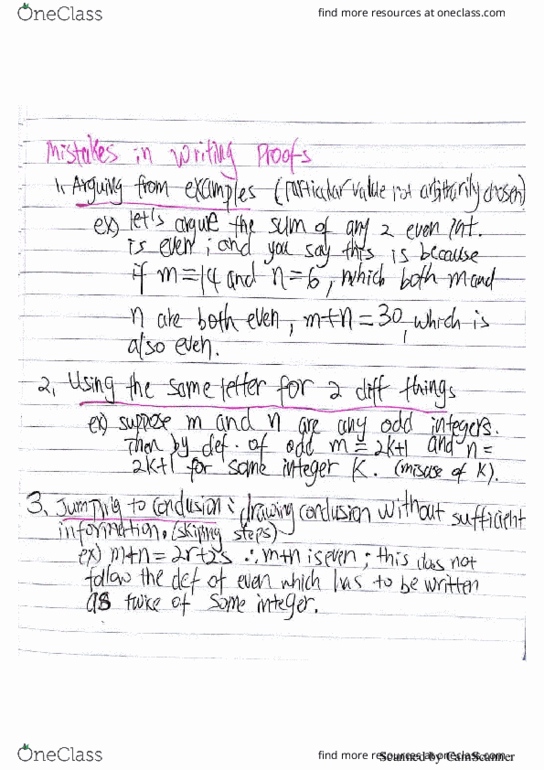 OneClass find more resources at oneclass.com
Mistakes in Writing Proofs
1. Arguing from examples (particular value not arbitrarily chosen)
ex) let's argue the sum of any 2 even int.
is even ; and you say this is because
if m=14 and n=6, which both m and
n are both even, m+n=30, which is
also even.
2. Using the same letter for 2 diff things
ex) suppose m and n are any odd integers.
Then by def. of odd m = 2k+1 and n=
2k+1 for some integer K. (misuse of K).
3. Jumping to conclusion : drawing conclusion without sufficient
information. (skiping steps)
ex) m+n = 2r+2s ∴ m+n is even ; this does not
follow the def of even which has to be written
as twice of some integer.
OneClass find more resources at oneclass.com
Scanned by CamScanner